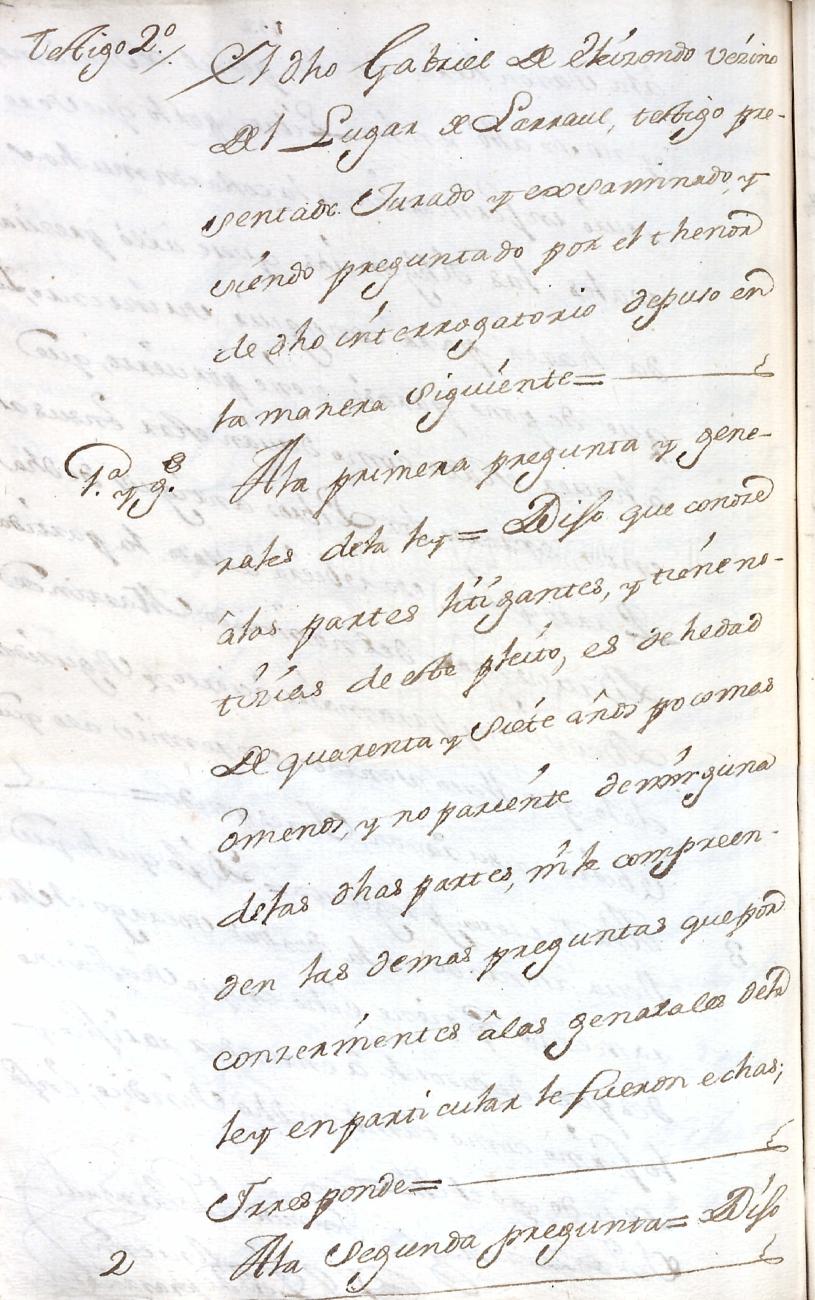 testigo 2º./. El dho Gabriel de Elizondo vezino
del Lugar de Larraul, testigo pre-
sentado Jurado y exsaminado, y
siendo preguntado por el thenor
de dho interrogatorio depuso en
la manera Siguiente=
1.ª y g.s Ala primera pregunta y gene-
rales dela ley= Diso que conoze
âlas partes litigantes, y tiene no-
tizias de este pleito, es de hedad
de quarenta y Siete años poco mas
ômenos, y no pariente deninguna
delas dhas partes, ni le compreen-
den las demas preguntas que por
conzernientes âlas genarales dela
ley en particular le fueron echas;
Yrresponde=
2 Ala Segunda pregunta= Diso